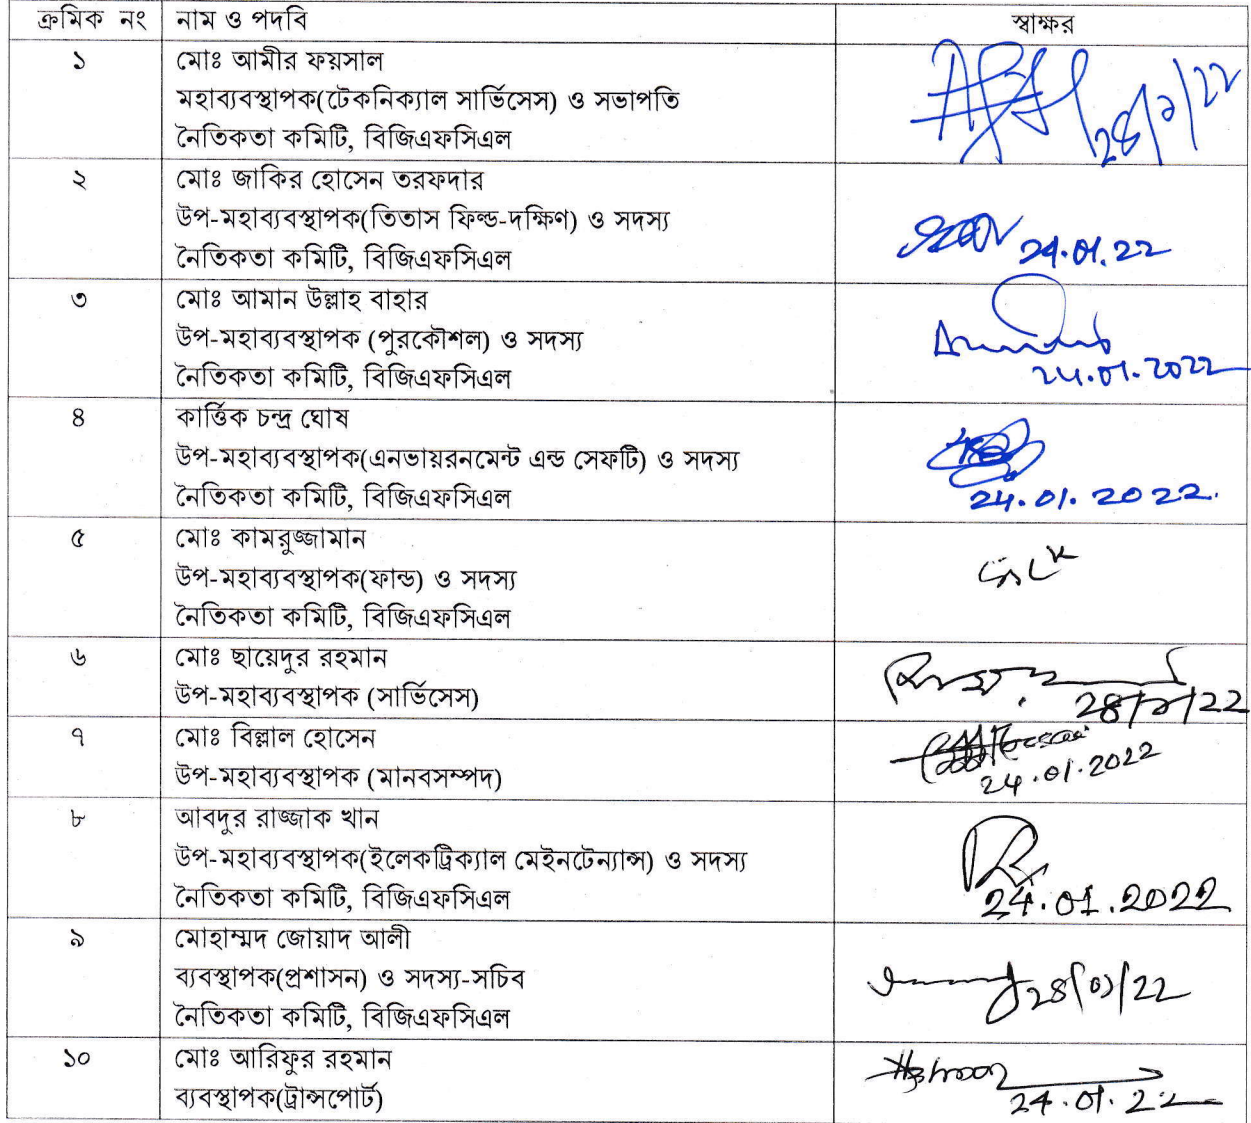 ক্রমিক নং নাম ও পদবি স্বাক্ষর
১ মোঃ আমীর ফয়সাল
মহাব্যবস্থাপক(টেকনিক্যাল সার্ভিসেস) ও সভাপতি
নৈতিকতা কমিটি, বিজিএফসিএল
২ মোঃ জাকির হোসেন তরফদার
উপ-মহাব্যবস্থাপক(তিতাস ফিল্ড-দক্ষিণ) ও সদস্য
নৈতিকতা কমিটি, বিজিএফসিএল
24.01.22
৩ মোঃ আমান উল্লাহ বাহার
উপ-মহাব্যবস্থাপক (পুরকৌশল) ও সদস্য
নৈতিকতা কমিটি, বিজিএফসিএল
24.01.2022
৪ কার্ত্তিক চন্দ্র ঘোষ
উপ-মহাব্যবস্থাপক(এনভায়রনমেন্ট এন্ড সেফটি) ও সদস্য
নৈতিকতা কমিটি, বিজিএফসিএল
24.01.2022.
৫ মোঃ কামরুজ্জামান
উপ-মহাব্যবস্থাপক(ফান্ড) ও সদস্য
নৈতিকতা কমিটি, বিজিএফসিএল
৬ মোঃ ছায়েদুর রহমান
উপ-মহাব্যবস্থাপক (সার্ভিসেস)
৭ মোঃ বিল্লাল হোসেন
উপ-মহাব্যবস্থাপক (মানবসম্পদ)
24.01.2022
৮ আবদুর রাজ্জাক খান
উপ-মহাব্যবস্থাপক(ইলেকট্রিক্যাল মেইনটেন্যান্স) ও সদস্য
নৈতিকতা কমিটি, বিজিএফসিএল
24.01.2022
৯ মোহাম্মদ জোয়াদ আলী
ব্যবস্থাপক(প্রশাসন) ও সদস্য-সচিব
নৈতিকতা কমিটি, বিজিএফসিএল
১০ মোঃ আরিফুর রহমান
ব্যবস্থাপক(ট্রান্সপোর্ট)
24.01.22